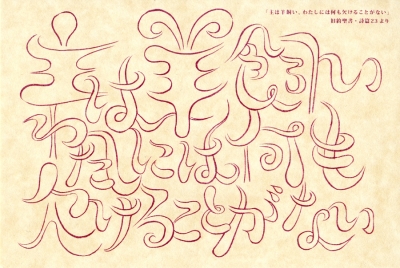 「主は羊飼い、わたしには何も欠けることがない」
旧約聖書・詩篇23より
主は羊飼い
わたしには何も
欠けることがない